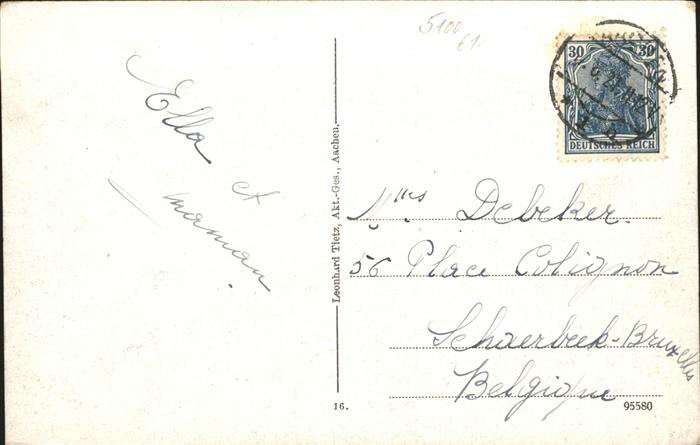 5100
£1
30 30
DEUTSCHES REICH
Ella
et
maman
Leonhard Tietz, Akt.-Ges., Aachen.
Mlles Debeker.
56 Place Colignon
Schaerbeek-Bruxelles
Belgique
16.
95580